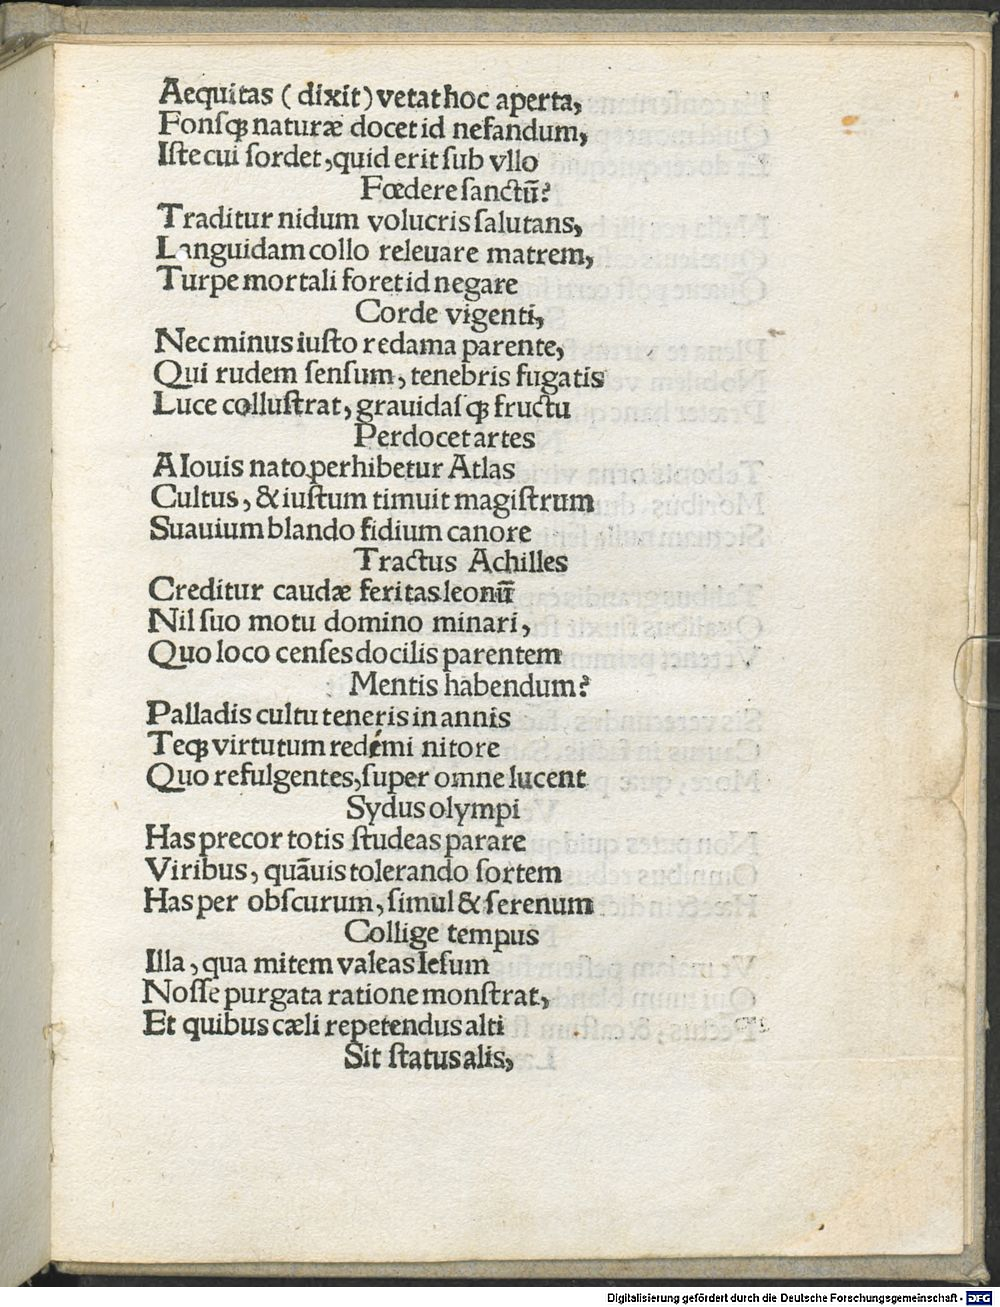 Aequitas ( dixit ) vetat hoc aperta,
Fonsqȝ naturæ docet id nefandum,
Iste cui sordet, quid erit sub vllo
Fœdere sanctū?
Traditur nidum volucris salutans,
Languidam collo releuare matrem,
Turpe mortali foret id negare
Corde vigenti,
Nec minus iusto redama parente,
Qui rudem sensum, tenebris fugatis
Luce collustrat, grauidasqȝ fructu
Perdocet artes
A Iouis nato perhibetur Atlas
Cultus, & iustum timuit magistrum
Suauium blando fidium canore
Tractus Achilles
Creditur caudæ feritas leonū
Nil suo motu domino minari,
Quo loco censes docilis parentem
Mentis habendum?
Palladis cultu teneris in annis
Teqȝ virtutum redimi nitore
Quo refulgentes, super omne lucent
Sydus olympi
Has precor totis studeas parare
Viribus, quāuis tolerando sortem
Has per obscurum, simul & serenum
Collige tempus
Illa, qua mitem valeas Iesum
Nosse purgata ratione monstrat,
Et quibus cæli repetendus alti
Sit status alis,
Digitalisierung gefördert durch die Deutsche Forschungsgemeinschaft - DFG